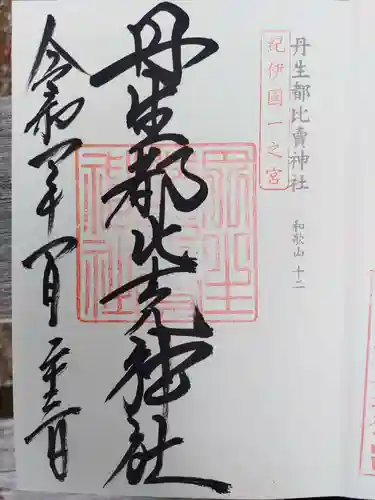 丹生都比賣神社
和歌山 十二
紀伊國一之宮
丹生都比売神社
令和四年四月二十三日